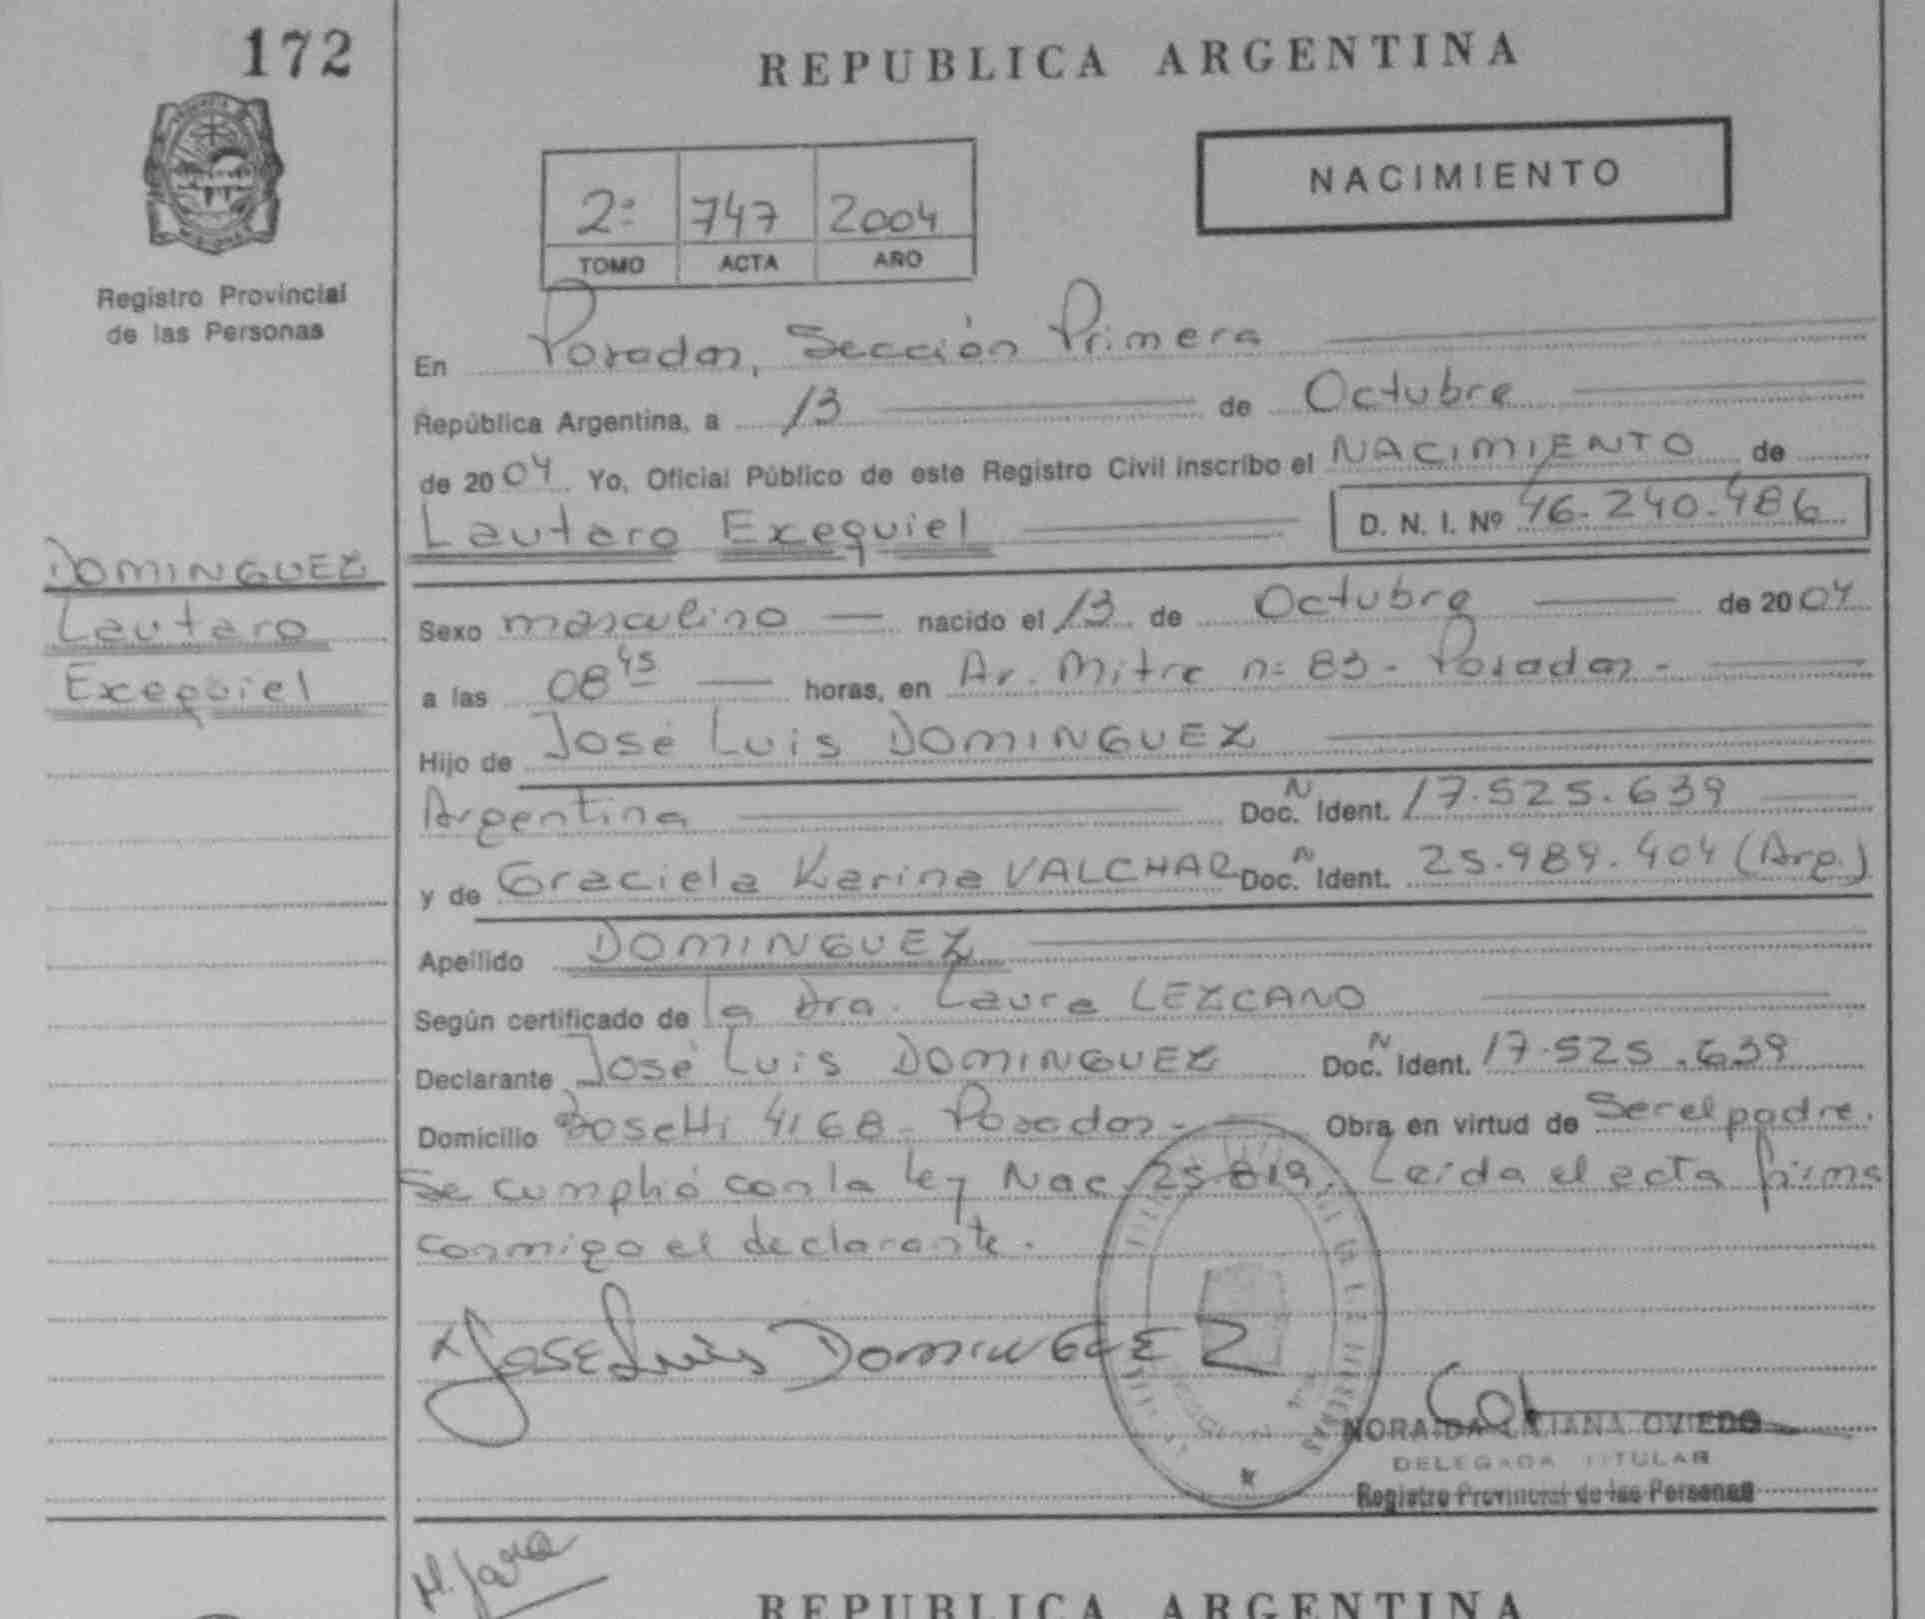 172
REPUBLICA ARGENTINA
NACIMIENTO
2º 747 2004
TOMO ACTA AÑO
Registro Provincial
de las Personas
En Posadas, Sección Primera
República Argentina, a 13 de Octubre
de 2004 Yo, Oficial Público de este Registro Civil inscribo el NACIMIENTO de
Lautaro Exequiel D. N. I. Nº 46.240.486
DOMINGUEZ
Lautaro
Exequiel
Sexo masculino nacido el 13 de Octubre de 2004
a las 08 45 horas, en Av. Mitre nº 83 - Posadas -
Hijo de José Luis DOMINGUEZ
Argentina Doc. N Ident. 17.525.639
y de Graciela Karina VALCHAR Doc. N Ident. 25.989.404 (Arg.)
Apellido DOMINGUEZ
Según certificado de la Dra. Laura LEZCANO
Declarante José Luis DOMINGUEZ Doc. N Ident. 17.525.639
Domicilio Bosetti 4168 - Posadas - Obra en virtud de Ser el padre.
Se cumplió con la ley Nac. 25.819. Leída el acta firma
conmigo el declarante.
Jose Luis DOMINGUEZ
LILIANA OVIEDO
DELEGADA TITULAR
Registro Provincial de las Personas
M. Jara
REPUBLICA ARGENTINA